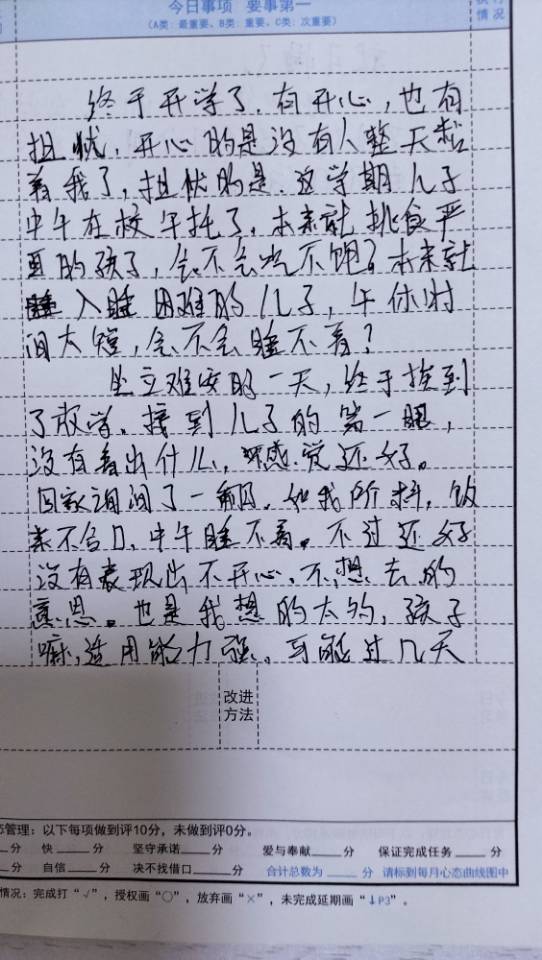 今日事项 要事第一
情况
(A类:最重要、B类:重要、C类:次重要)
终于开学了,有开心,也有
担忧,开心的是没有人整天粘
着我了,担忧的是,这学期儿子
中午在校午托了,本来就挑食严
重的孩子,会不会吃不饱?本来就
入睡困难的儿子,午休时
间太短,会不会睡不着?
坐立难安的一天,终于挨到
了放学,接到儿子的第一眼,
没有看出什么,感觉还好。
回家询问了一翻,如我所料,饭
菜不合口,中午睡不着。不过还好
没有表现出不开心,不想去的
意思。也是我想的太多,孩子
嘛,适用能力强,可能过几天
改进
方法
管理:以下每项做到评10分,未做到评0分。
分 快 分 坚守承诺 分 爱与奉献 分 保证完成任务 分
分 自信 分 决不找借口 分 合计总数为 分 请标到每月心态曲线图中
情况:完成打“√”,授权画“○”,放弃画“×”,未完成延期画“↓P3”。